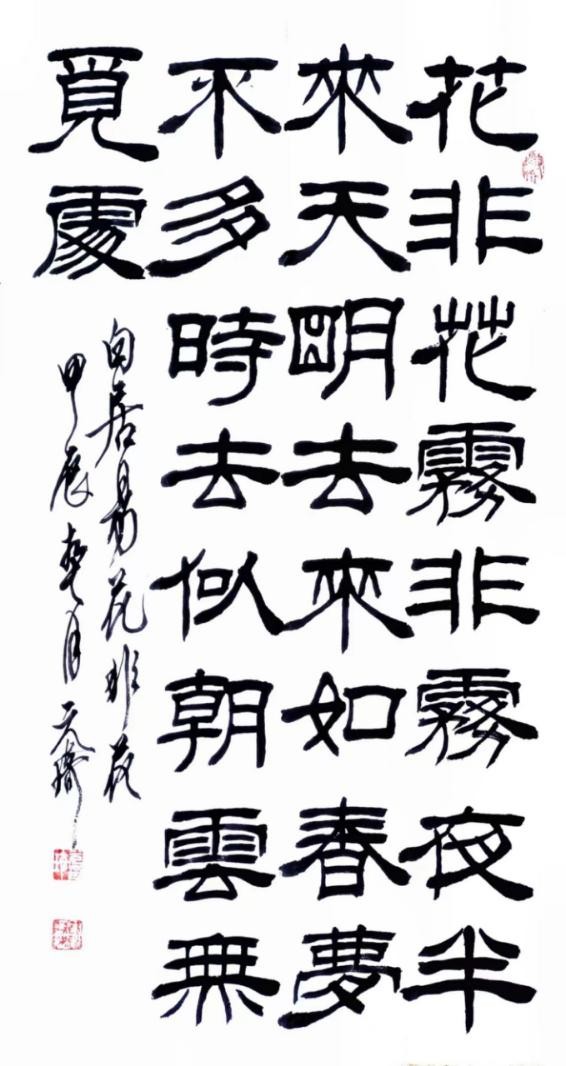 花非花霧非霧夜半
來天明去來如春夢
不多時去似朝雲無
覓處
白居易花非花
甲辰月